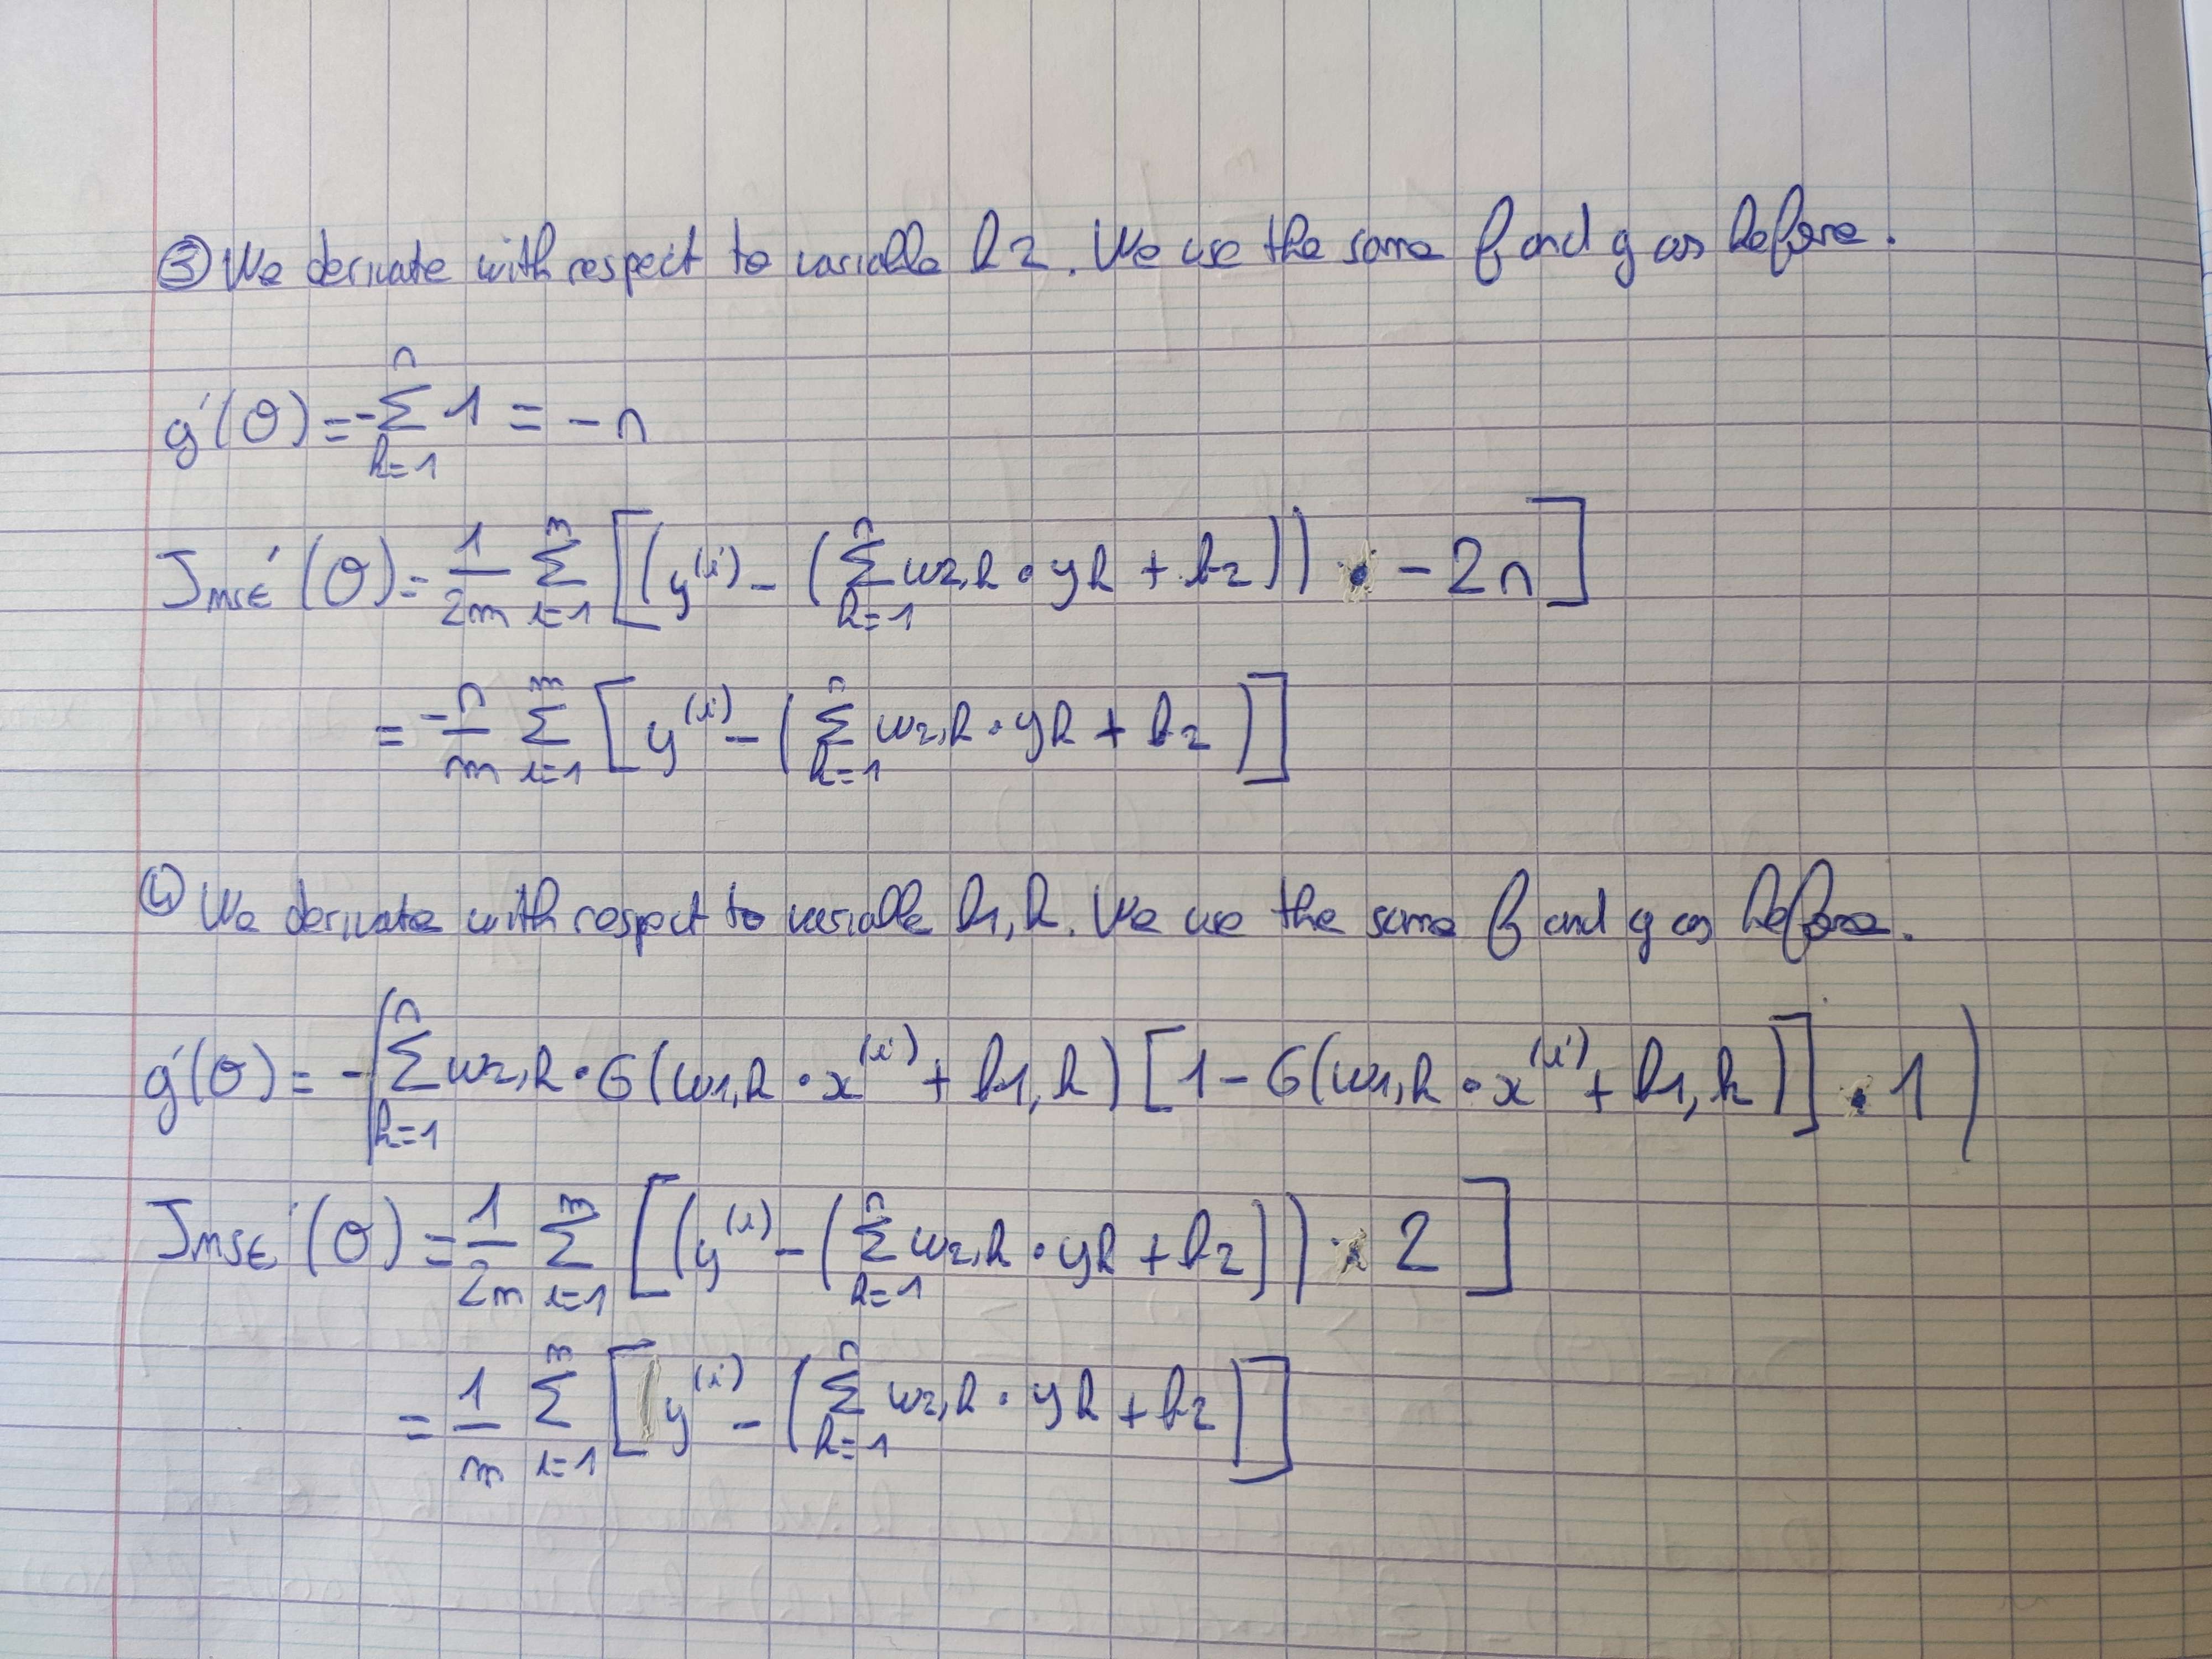 ③ We derivate with respect to variable b2. We use the same f and g as before.
g'(θ) = -∑_{k=1}^{n} 1 = -n
J_{MSE}'(θ) = \frac{1}{2m} ∑_{i=1}^{m} [(y^{(i)} - (∑_{k=1}^{n} w_{2,k} · y_k + b_2)) · -2n]
= \frac{-n}{m} ∑_{i=1}^{m} [y^{(i)} - (∑_{k=1}^{n} w_{2,k} · y_k + b_2)]
④ We derivate with respect to variable b1,k. We use the same f and g as before.
g'(θ) = -(∑_{k=1}^{n} w_{2,k} · σ(w_{1,k} · x^{(i)} + b_{1,k}) [1 - σ(w_{1,k} · x^{(i)} + b_{1,k})] · 1)
J_{MSE}'(θ) = \frac{1}{2m} ∑_{i=1}^{m} [(y^{(i)} - (∑_{k=1}^{n} w_{2,k} · y_k + b_2)) · 2]
= \frac{1}{m} ∑_{i=1}^{m} [y^{(i)} - (∑_{k=1}^{n} w_{2,k} · y_k + b_2)]